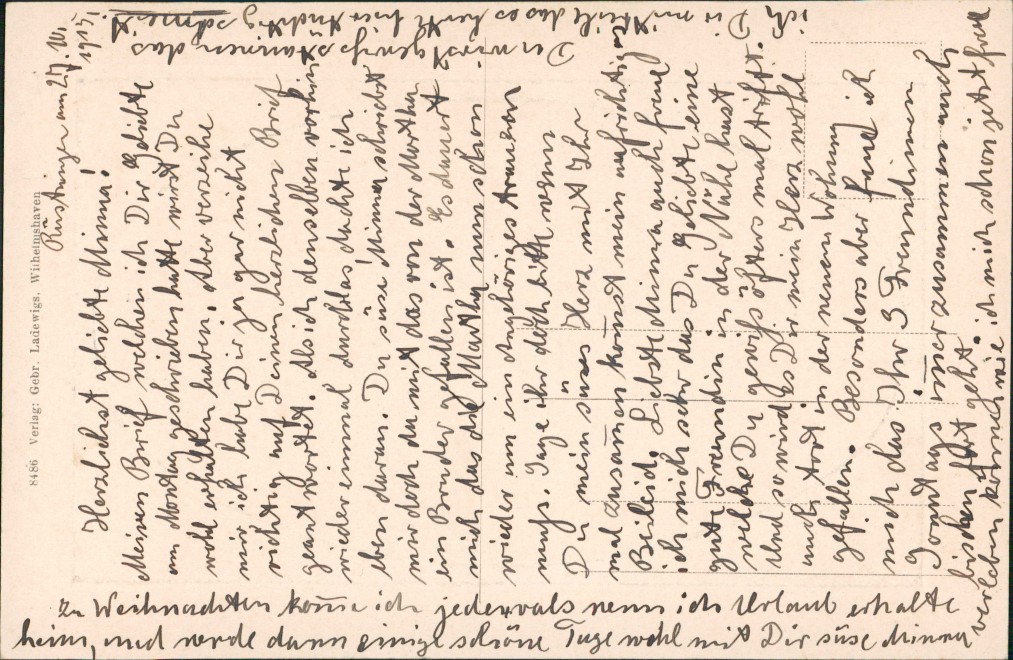 8486 Verlag: Gebr. Ladewigs, Wilhelmshaven
Rüstringen am 27. 10.
1915.
Herzlichst geliebte Minna!
Meinen Brief welchen ich Dir Geliebte
am Montag geschrieben hatte wirst Du
wohl erhalten haben, aber verzeihe
mir ich habe Dir ja gar nicht
richtig auf Deinen herzlichen Brief
geantwortet. Als ich denselben vorhin
wieder einmal durchlas dachte ich
eben daran. Du süse Minna schriebst
mir doch du mit das von der Martha
ein Bruder gefallen ist. Es dauert
mich das die Martha nun schon
wieder um ein Angehöriges trauern
muß. Sage ihr doch bitte wenn
Du mein süses Herz mit Ihr
mal zusammen kommst mein aufrichtiges
Beileid. Liebste Minna auch freut
ich mich sehr das Du Geliebte eine
gute Freundin in der Nähe hast
welche Du gewiß öfters mal triffst.
Und so wird es Dir mein Herz wohl
auch dort in der neuen Wohnung
gefallen. Besonders aber freut ich
mich das Ihr 3 Freundinnen
Sonntags immer zusammen noch
bischen fort geht.
zu Weihnachten komme ich jedenvals wenn ich Urlaub erhalte
heim, und werde dann einige schöne Tage wohl mit Dir süse Minna
verleben können, wie ich mich schon jetzt freue
Du wirst gewiß staunen das
ich Dir mitteile das es heute hier tüchtig schneit.